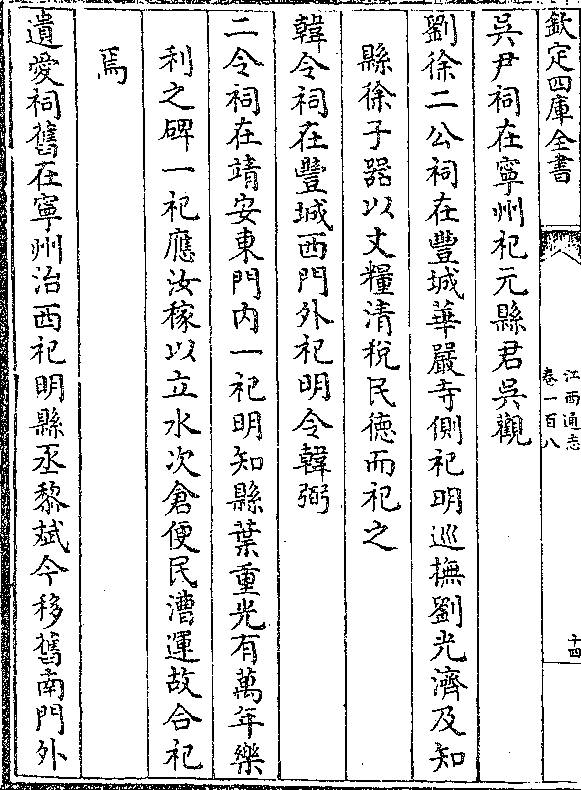 欽定四庫全書
江西通志
卷一百八
十四
吳尹祠在寧州祀元縣君吳觀
劉徐二公祠在豐城華嚴寺側祀明巡撫劉光濟及知
縣徐子器以丈糧清稅民德而祀之
韓令祠在豐城西門外祀明令韓弼
二令祠在靖安東門內一祀明知縣葉重光有萬年樂
利之碑一祀應汝稼以立水次倉便民漕運故合祀
焉
遺愛祠舊在寧州治西祀明縣丞黎斌今移舊南門外